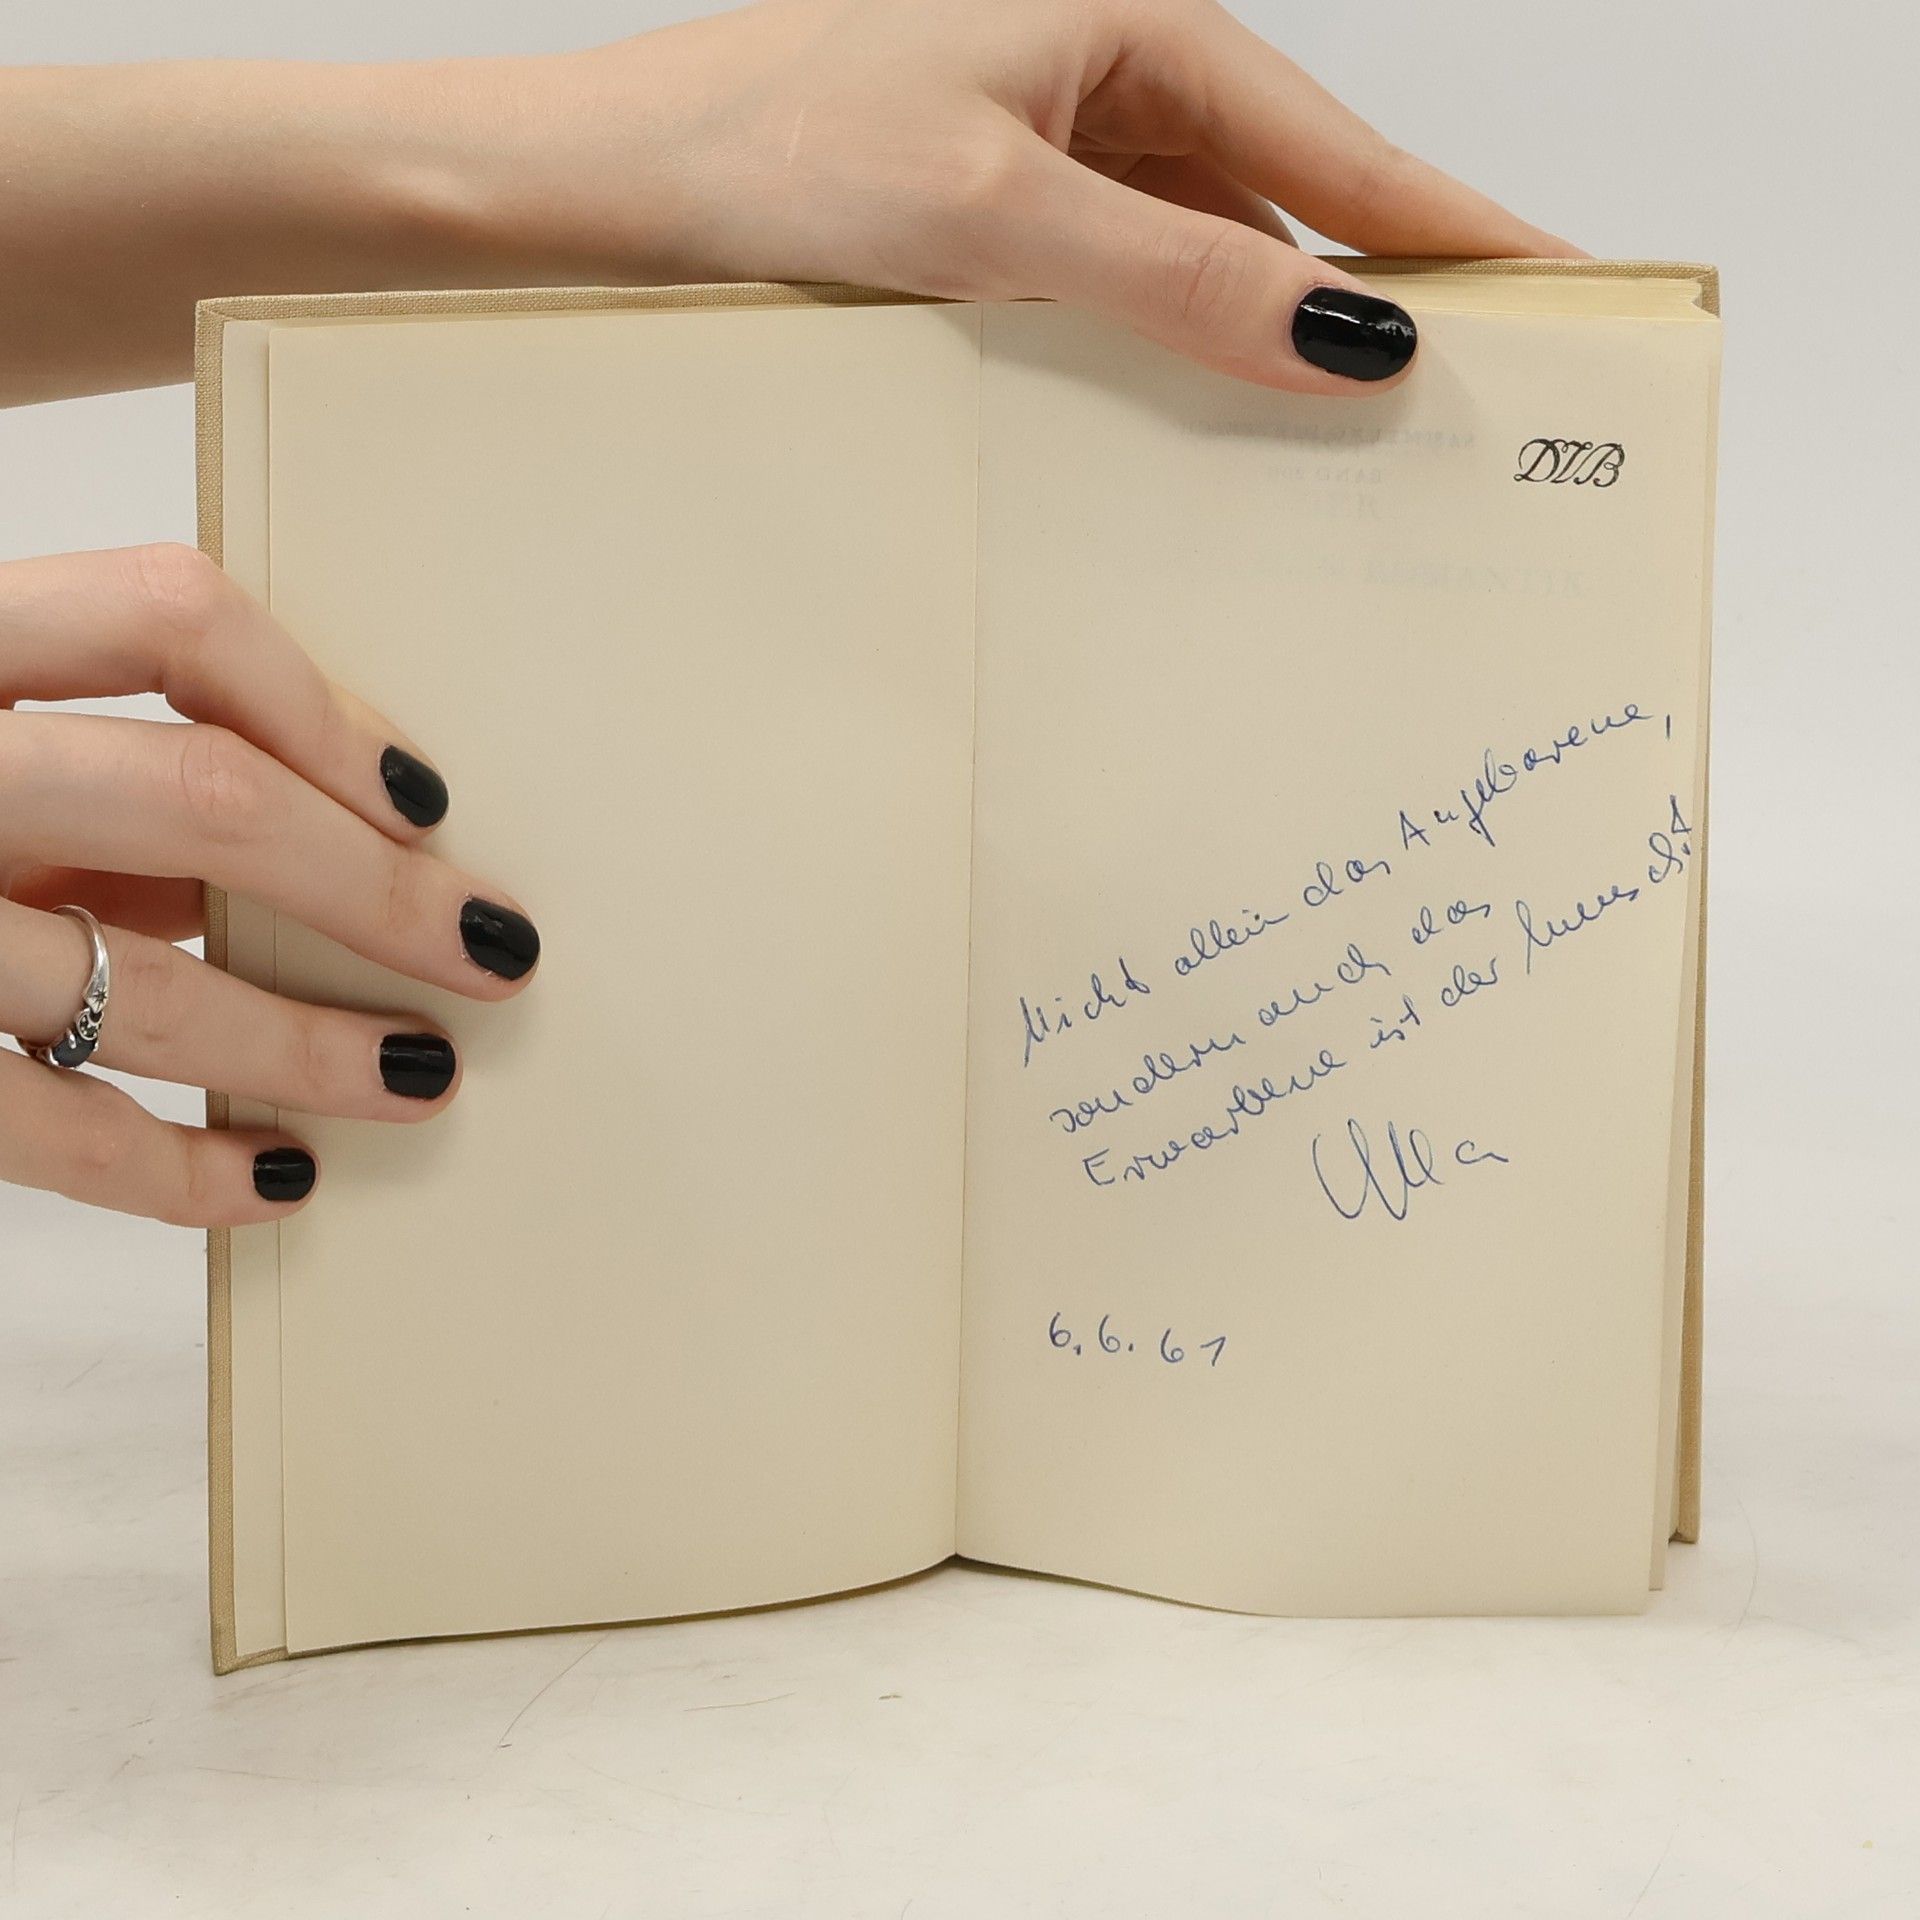 DVB
ROMANTIK
Nicht allein das Angeborene,
sondern auch das
Erworbene ist der Mensch.
Ulla
6.6.61